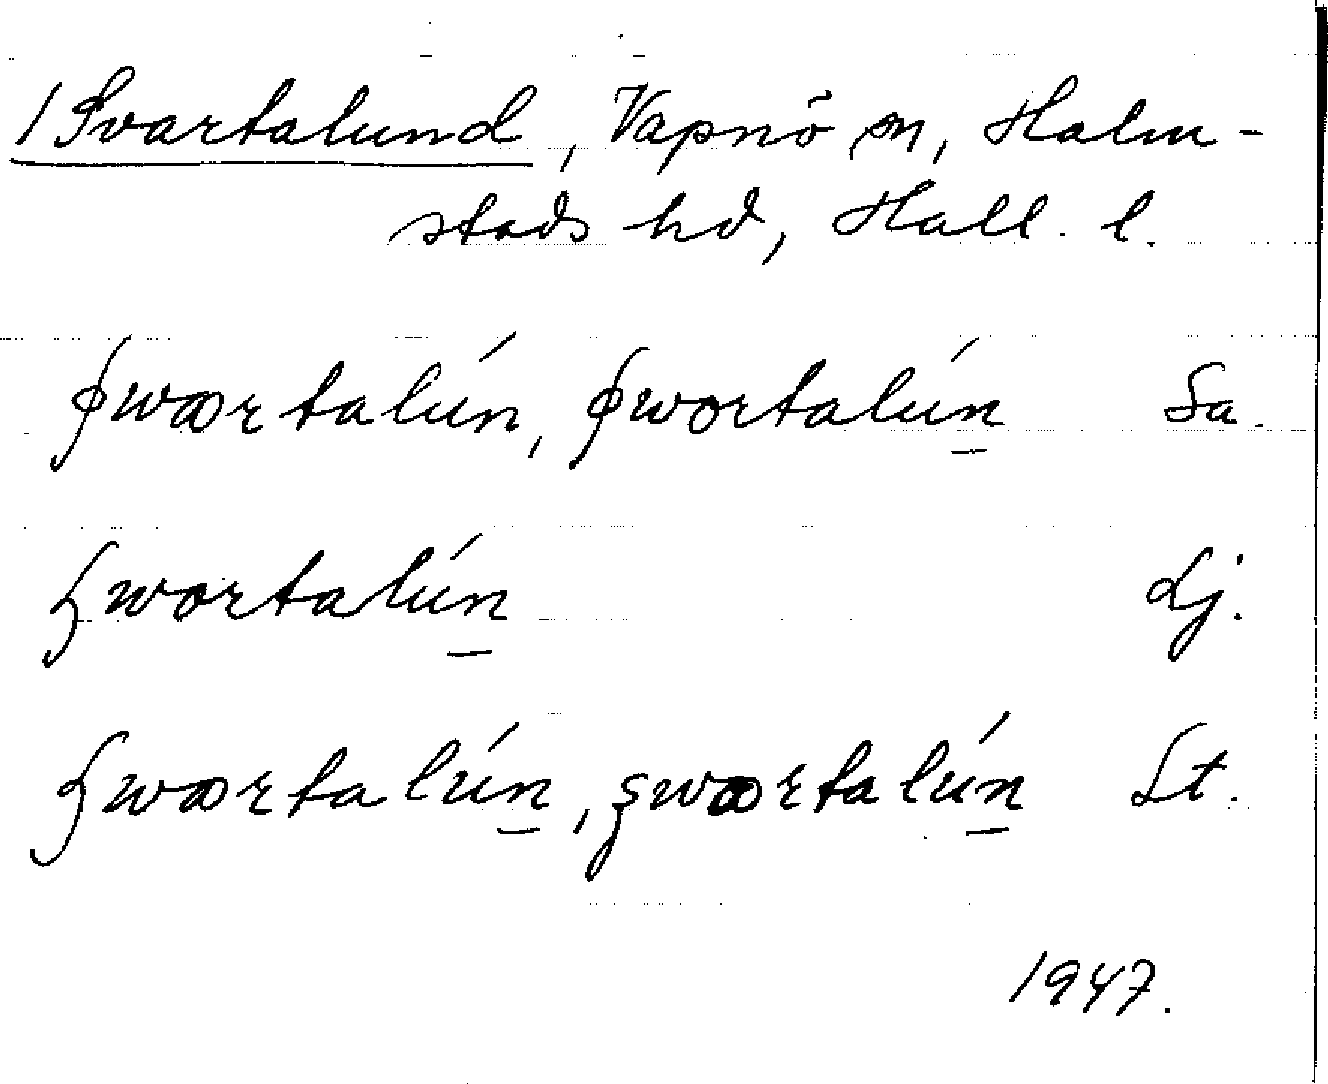 1 Svartalund, Vapnö sn, Halm-
stads hd, Hall. l.
ʃwærtalún, ʃwortalún Sa.
ʃwortalún Lj.
ʃwærtalún, ʃwærtalún St.
1947.